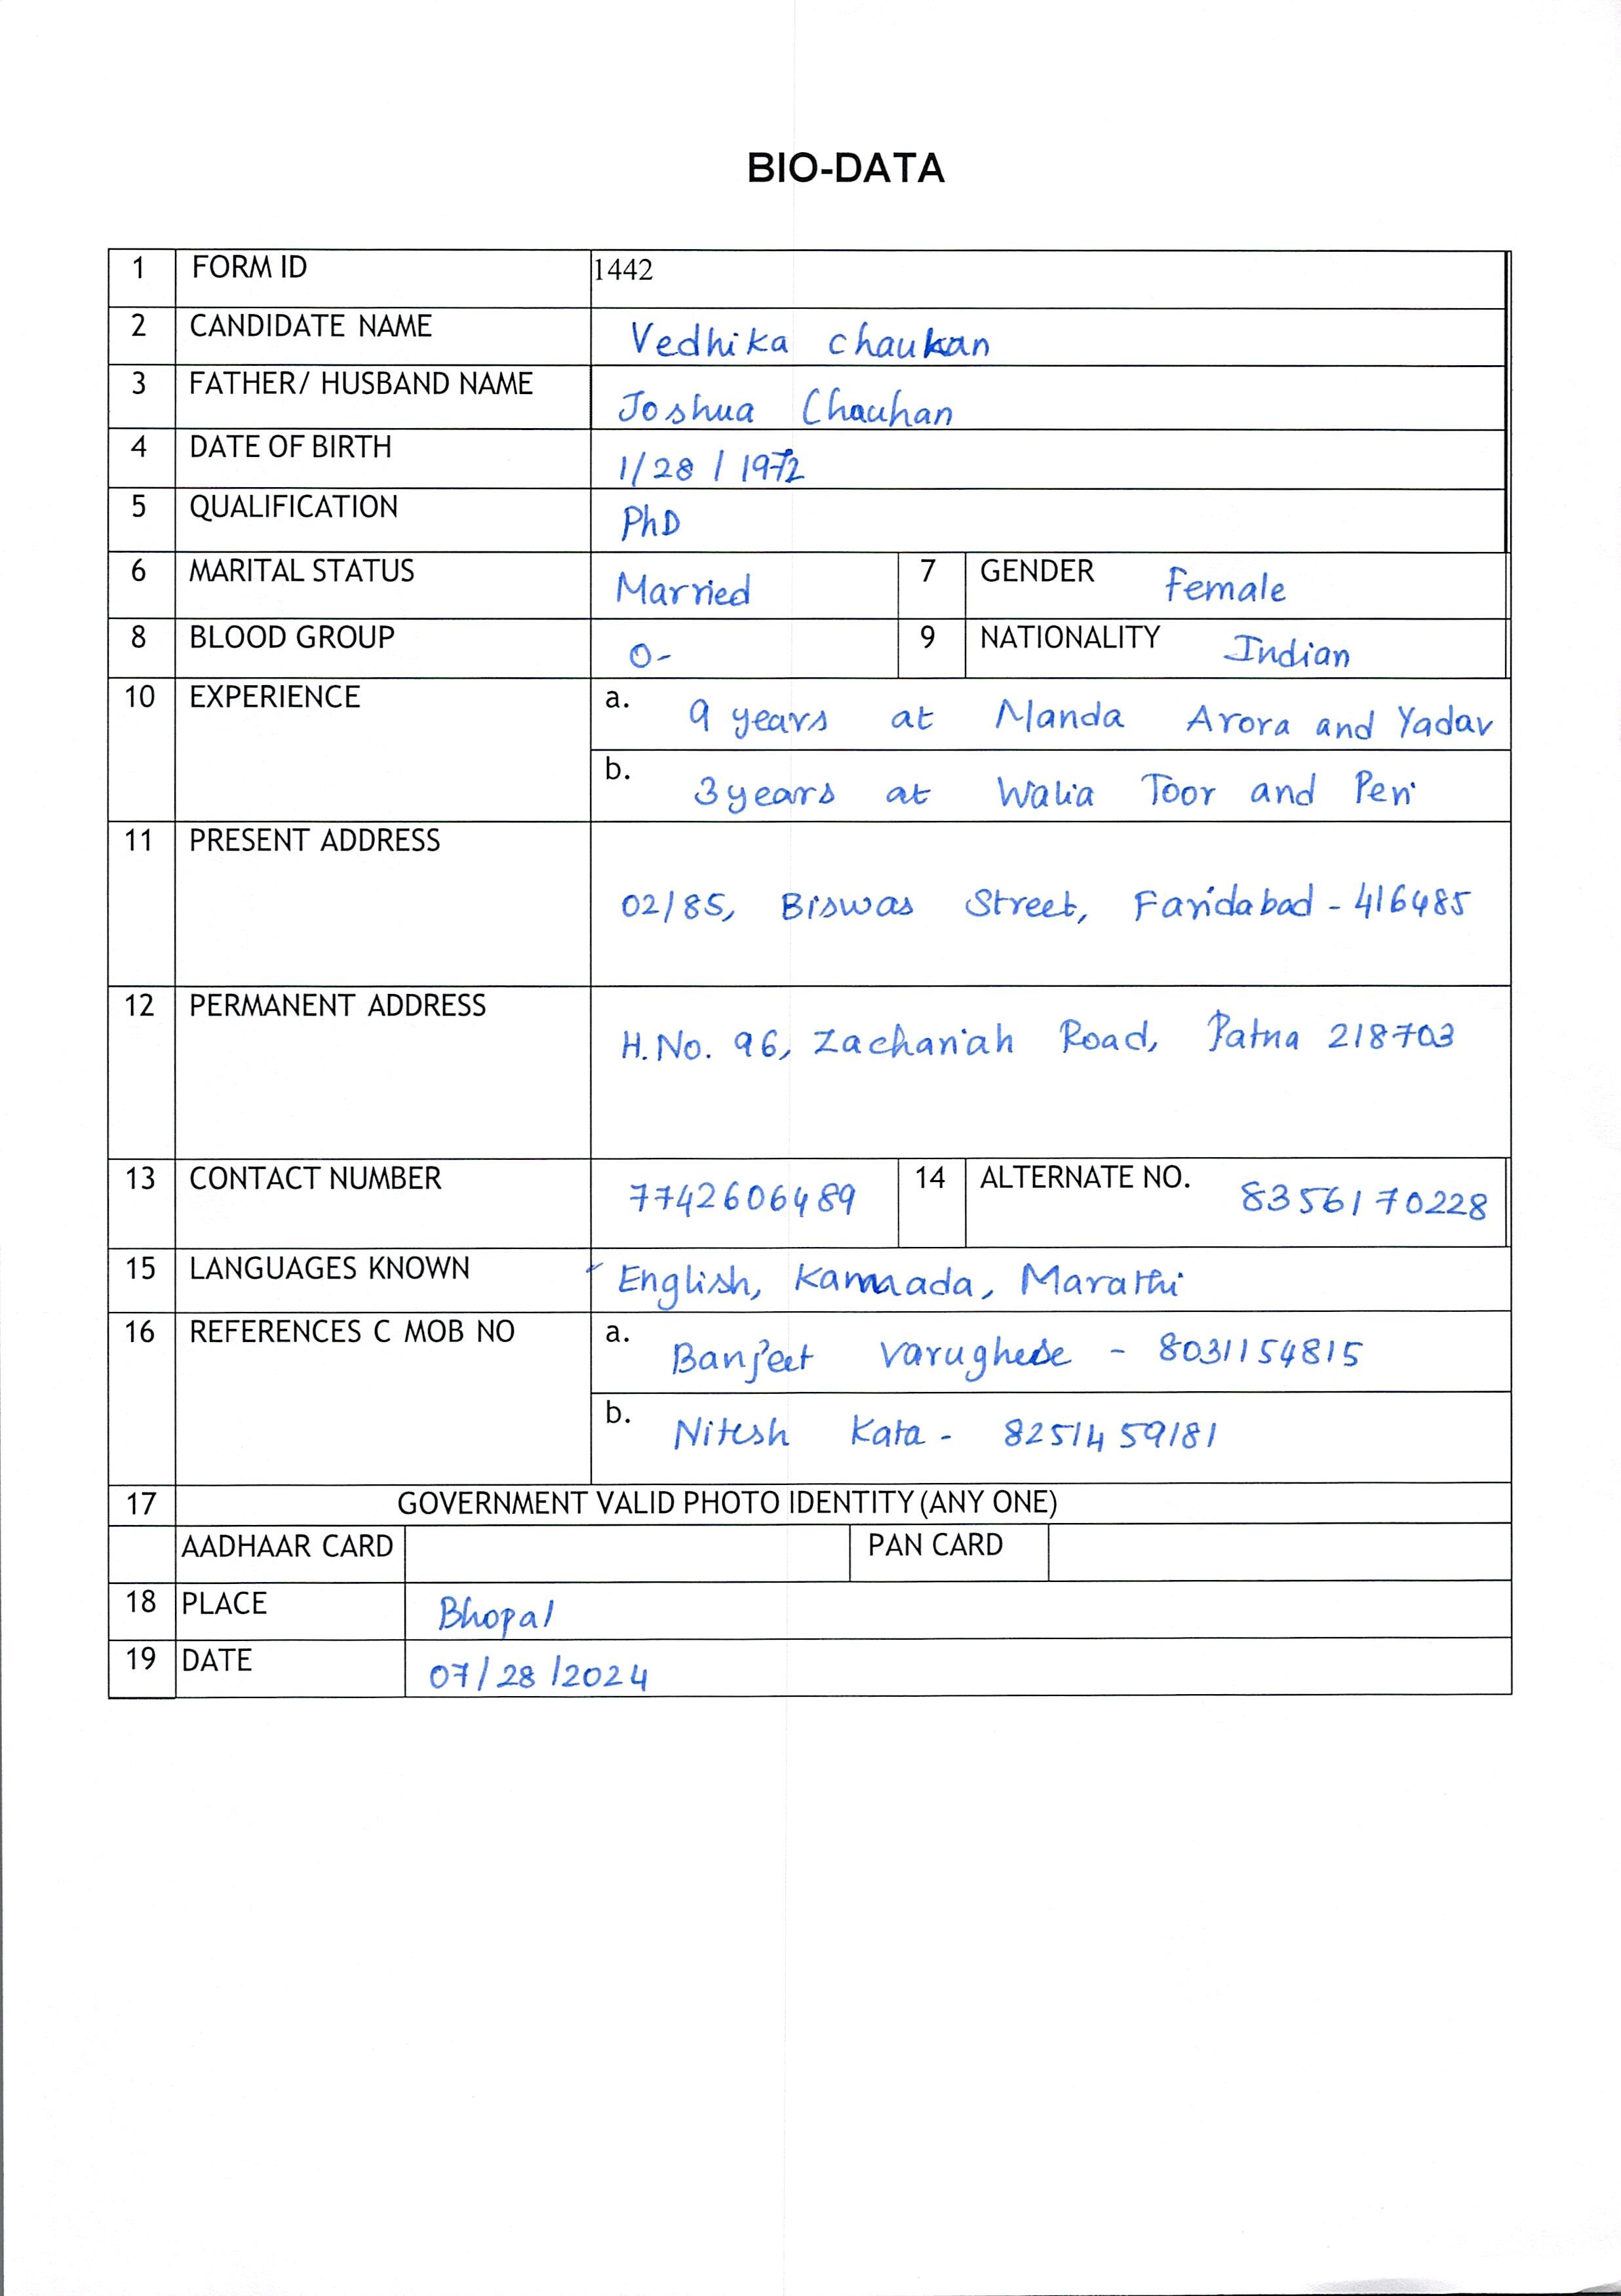 BIO-DATA
1 FORM ID 1442
2 CANDIDATE NAME Vedhika chauhan
3 FATHER/ HUSBAND NAME Joshua Chauhan
4 DATE OF BIRTH 1/28/1972
5 QUALIFICATION PhD
6 MARITAL STATUS Married 7 GENDER Female
8 BLOOD GROUP O- 9 NATIONALITY Indian
10 EXPERIENCE a. 9 years at Manda Arora and Yadav
b. 3 years at Walia Toor and Peri
11 PRESENT ADDRESS
02/85, Biswas Street, Faridabad - 416485
12 PERMANENT ADDRESS
H.No. 96, Zachariah Road, Patna 218703
13 CONTACT NUMBER 7742606489 14 ALTERNATE NO. 8356170228
15 LANGUAGES KNOWN English, Kannada, Marathi
16 REFERENCES C MOB NO a. Banjeet Varughese - 8031154815
b. Nitesh Kata - 8251459181
17 GOVERNMENT VALID PHOTO IDENTITY (ANY ONE)
AADHAAR CARD PAN CARD
18 PLACE Bhopal
19 DATE 07/28/2024